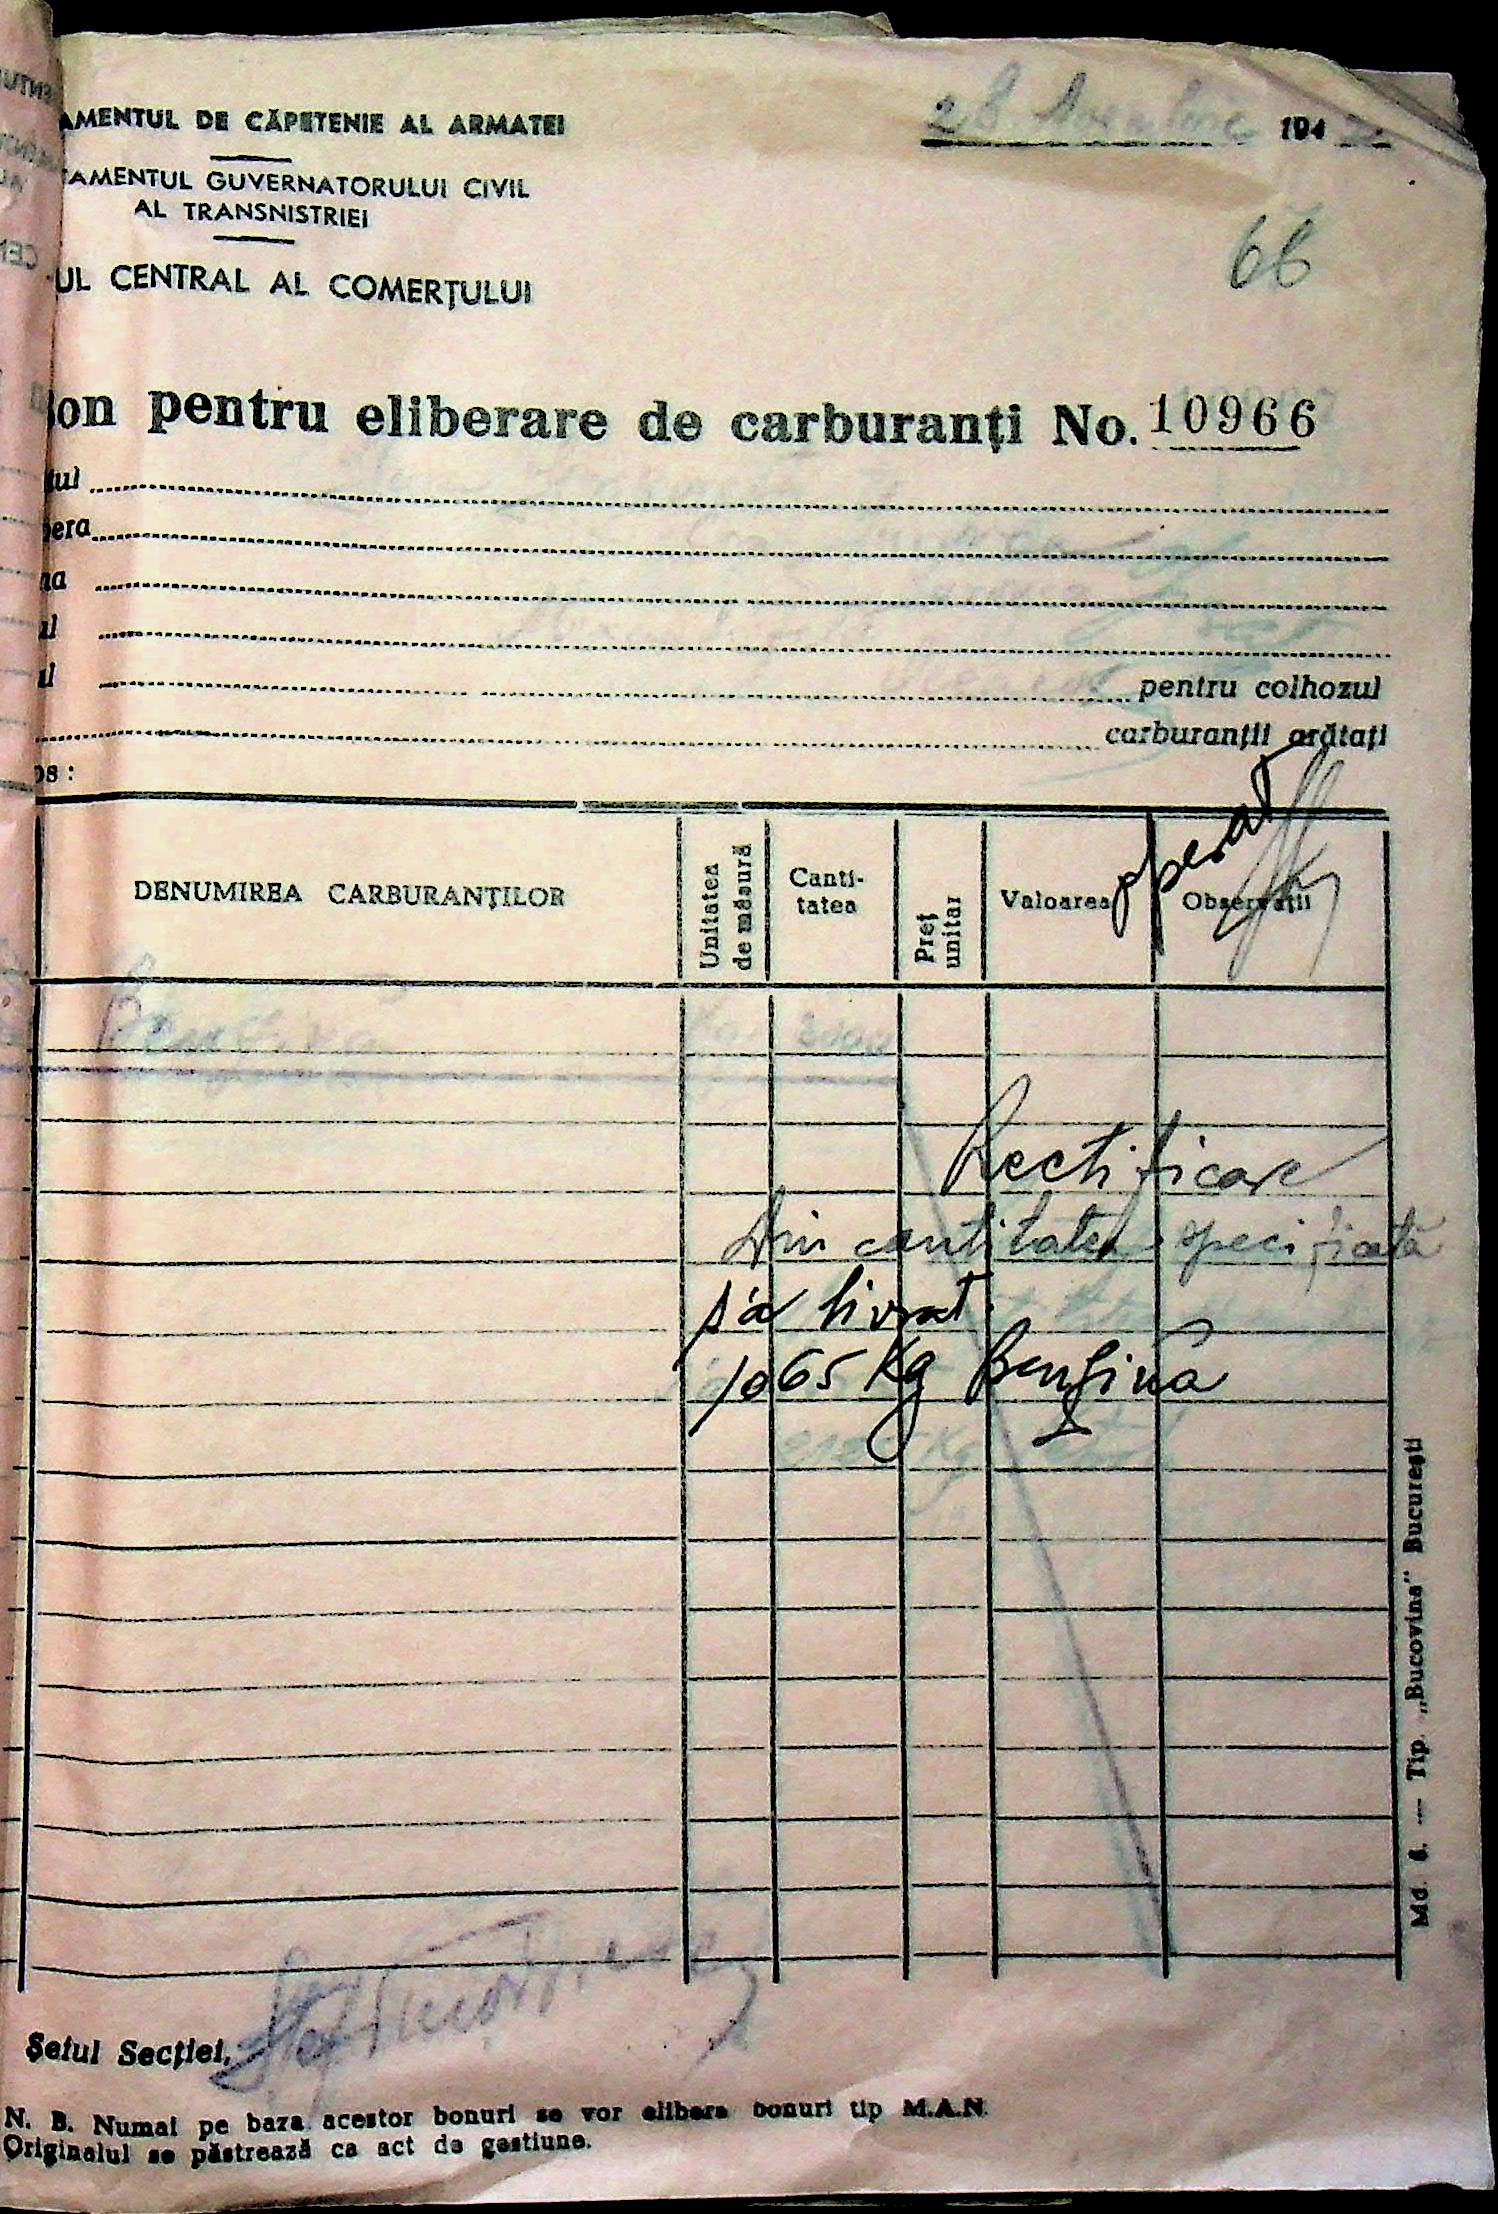 AMENTUL DE CĂPETENIE AL ARMATEI
28 194
TAMENTUL GUVERNATORULUI CIVIL
AL TRANSNISTRIEI
66
UL CENTRAL AL COMERȚULUI
Bon pentru eliberare de carburanți No. 10966
tul
bera
na
ul
ul pentru colhozul
carburanții arătați
os :
operat
DENUMIREA CARBURANȚILOR
Unitatea de măsură
Canti-
tatea
Preț unitar
Valoarea
Observații
Benzină
Rectificare
Din cantitatea specificată
s'a livrat
1065 Kg Benzină
Șeful Secției,
N. B. Numai pe baza acestor bonuri se vor elibera bonuri tip M.A.N.
Originalul se păstrează ca act de gestiune.
Md. 6. — Tip. „Bucovina" București